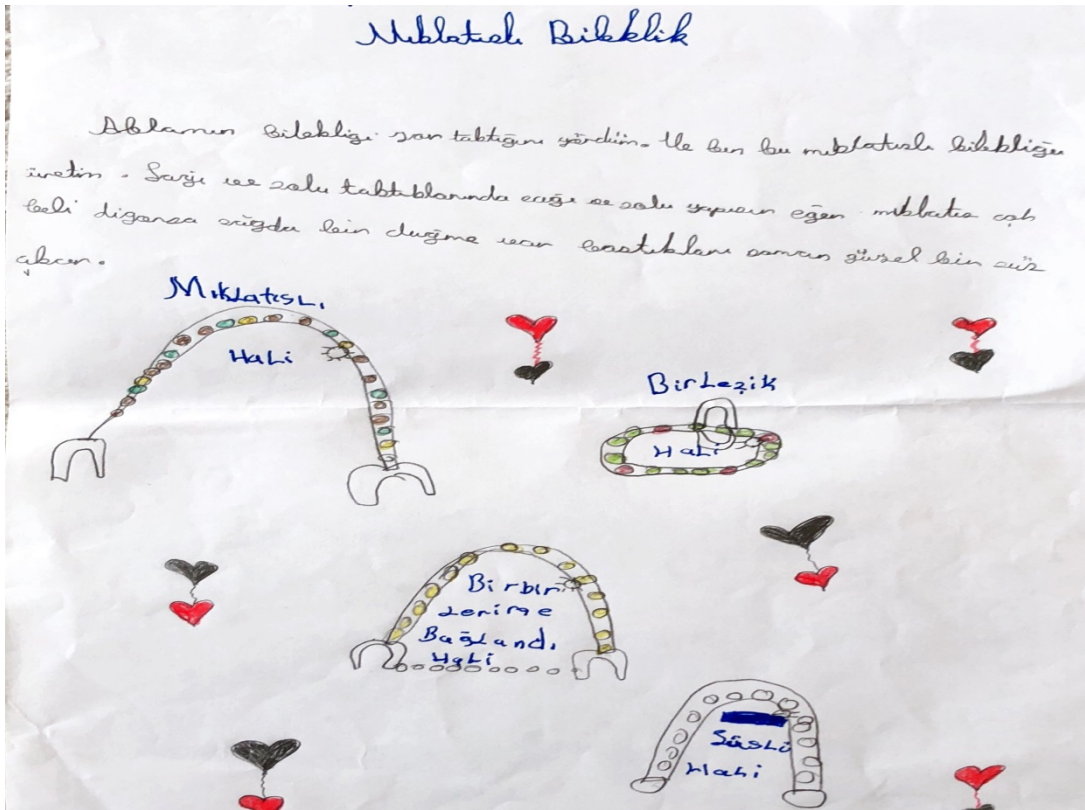 Mıklatıslı Bileklik
Ablamın bilekliği zor taktığını gördüm. Ve ben bu mıklatıslı bilekliği
üretim. Sağı ve solu taktıklarında sağı ve solu yapısın eğer mıkbatıs
beli diğarsa sağda bir düğme var bastıkları zaman güzel bir süz
akar.
Mıklatıslı
Hali
Birleşik
Hali
Birbir
lerine
Bağlandı
Hali
Süslü
Hali